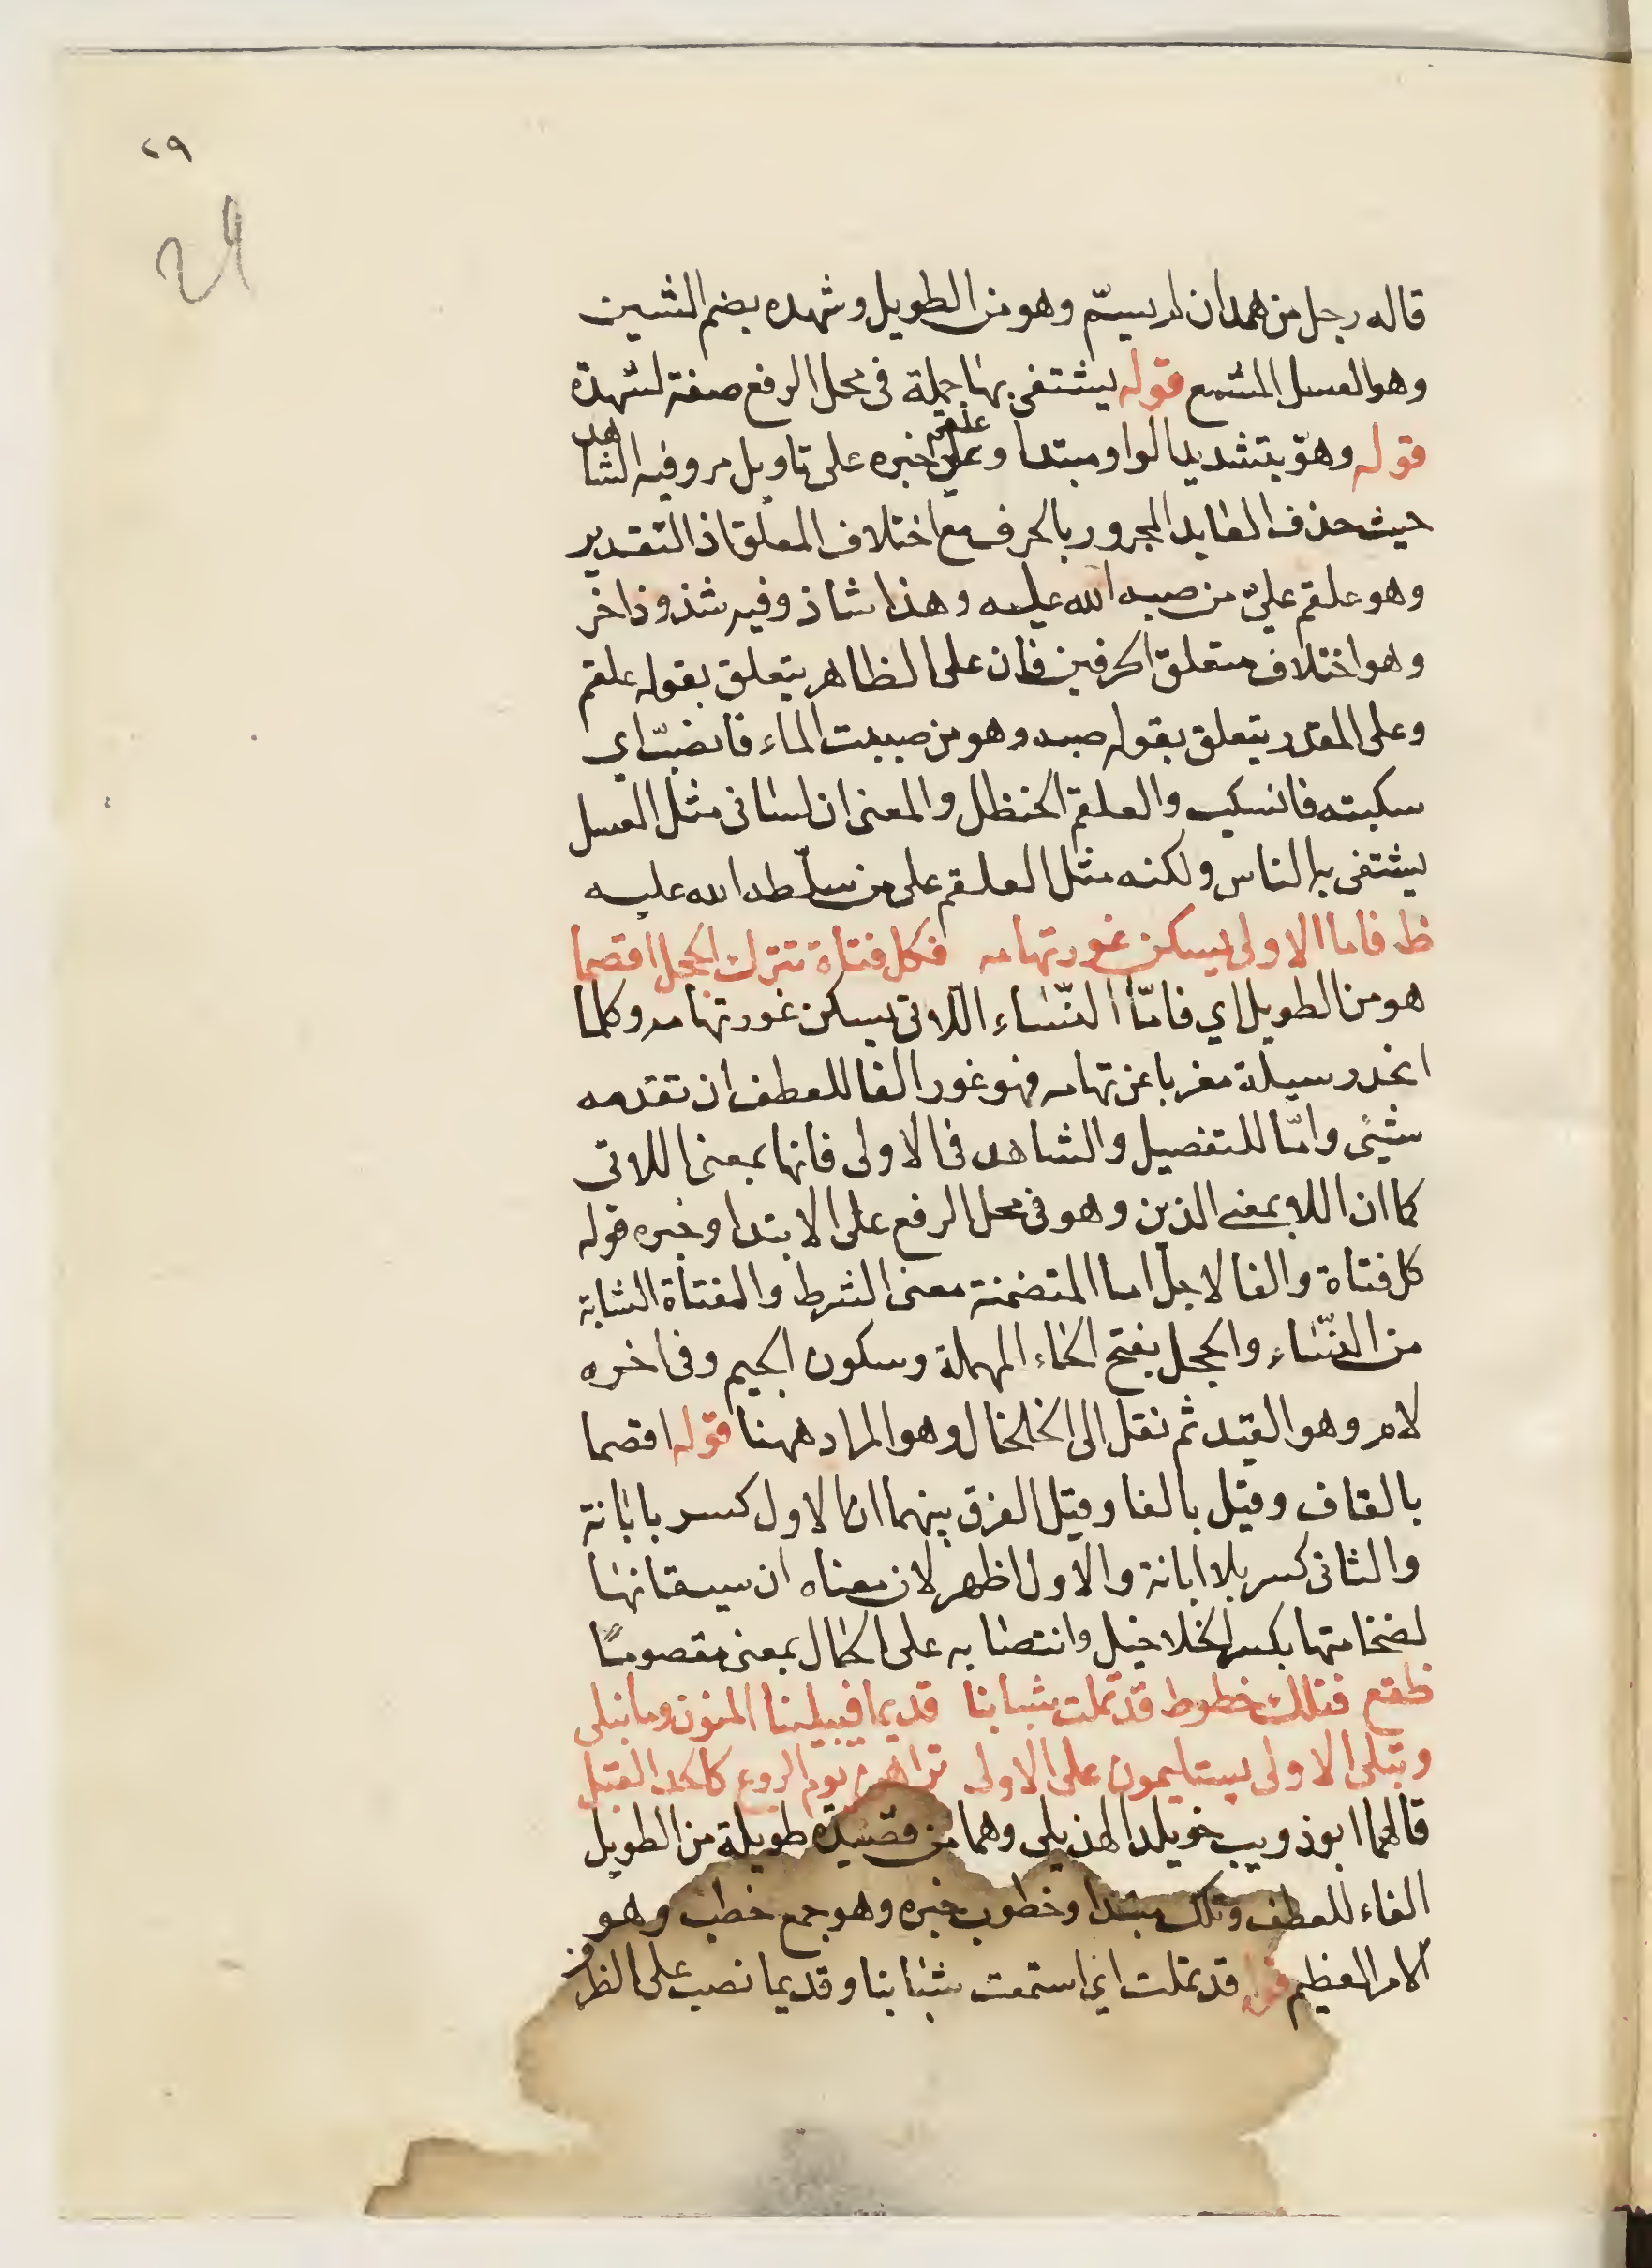 ٢٩
قاله رجل من همدان لم يسمّ وهو من الطويل وشهده بضم الشين
وهو العسل المشمع قوله يشتفى بها جملة فى محل الرفع صفة لشهدة
قوله وهوّ بتشديد الواو مبتدا وعلقم خبره على تاويل مر وفيه الشاهد
حيث حذف العايد المجرور بالحرف مع اختلاف المعلق اذ التقدير
وهو علقم علي من صبه الله عليه وهذا شاذ وفيه شذوذ اخر
وهو اختلاف متعلق الحرفين فان على الظاهر يتعلق بقوله علقم
وعلى المقدر يتعلق بقوله صبه وهو من صببت الماء فانصبّ اي
سكبته فانسكب والعلقم الحنظل والمعنى ان لسانى مثل العسل
يشتفى به الناس ولكنه مثل العلقم على من سلّطه الله عليه
ظ فاما الاولى يسكن غور تهامه فكل فتاة تترك الحجل اقصما
هو من الطويل اي فامّا النّساء اللاتى يسكن غور تهامه وكلما
انحدر سيلة مغربا عن تهامه فهو غور الفا للعطف ان تقدمه
شيئى وامّا للتفصيل والشاهد فى الاولى فانها بمعنى اللاتى
كما ان اللا بمعنى الذين وهو فى محل الرفع على الابتدا وخبره قوله
كل فتاة والفا لاجل اما المتضمنة معنى الشرط والفتاة الشابة
من النّساء والحجل بفتح الحاء المهملة وسكون الجيم وفى اخره
لام وهو القيد ثم نقل الى الخلخال وهو المراد ههنا قوله اقصما
بالقاف وقيل بالفا وقيل الفرق بينهما ان الاول كسر بابانة
والثانى كسر بلا ابانة والاول اظهر لان معناه ان سيقانها
لضخامتها بكسر الخلاخيل وانتصابه على الحال بمعنى مقصومًا
ظقع فتلك خطوط قد تملت شبابنا قديما فيبلينا المنون وما نبلى
وتبلى الاولى يستليمون على الاولى تراهن يوم الروع كالحدا القبل
قالهما ابو ذويب خويلد الهذيلى وهما من قصيدة طويلة من الطويل
الفاء للعطف وتلك مبتدا وخطوب خبره وهو جمع خطب وهو
الامر العظيم قوله قد تملت اي استمعت شبابنا وقديما نصب على الظرف